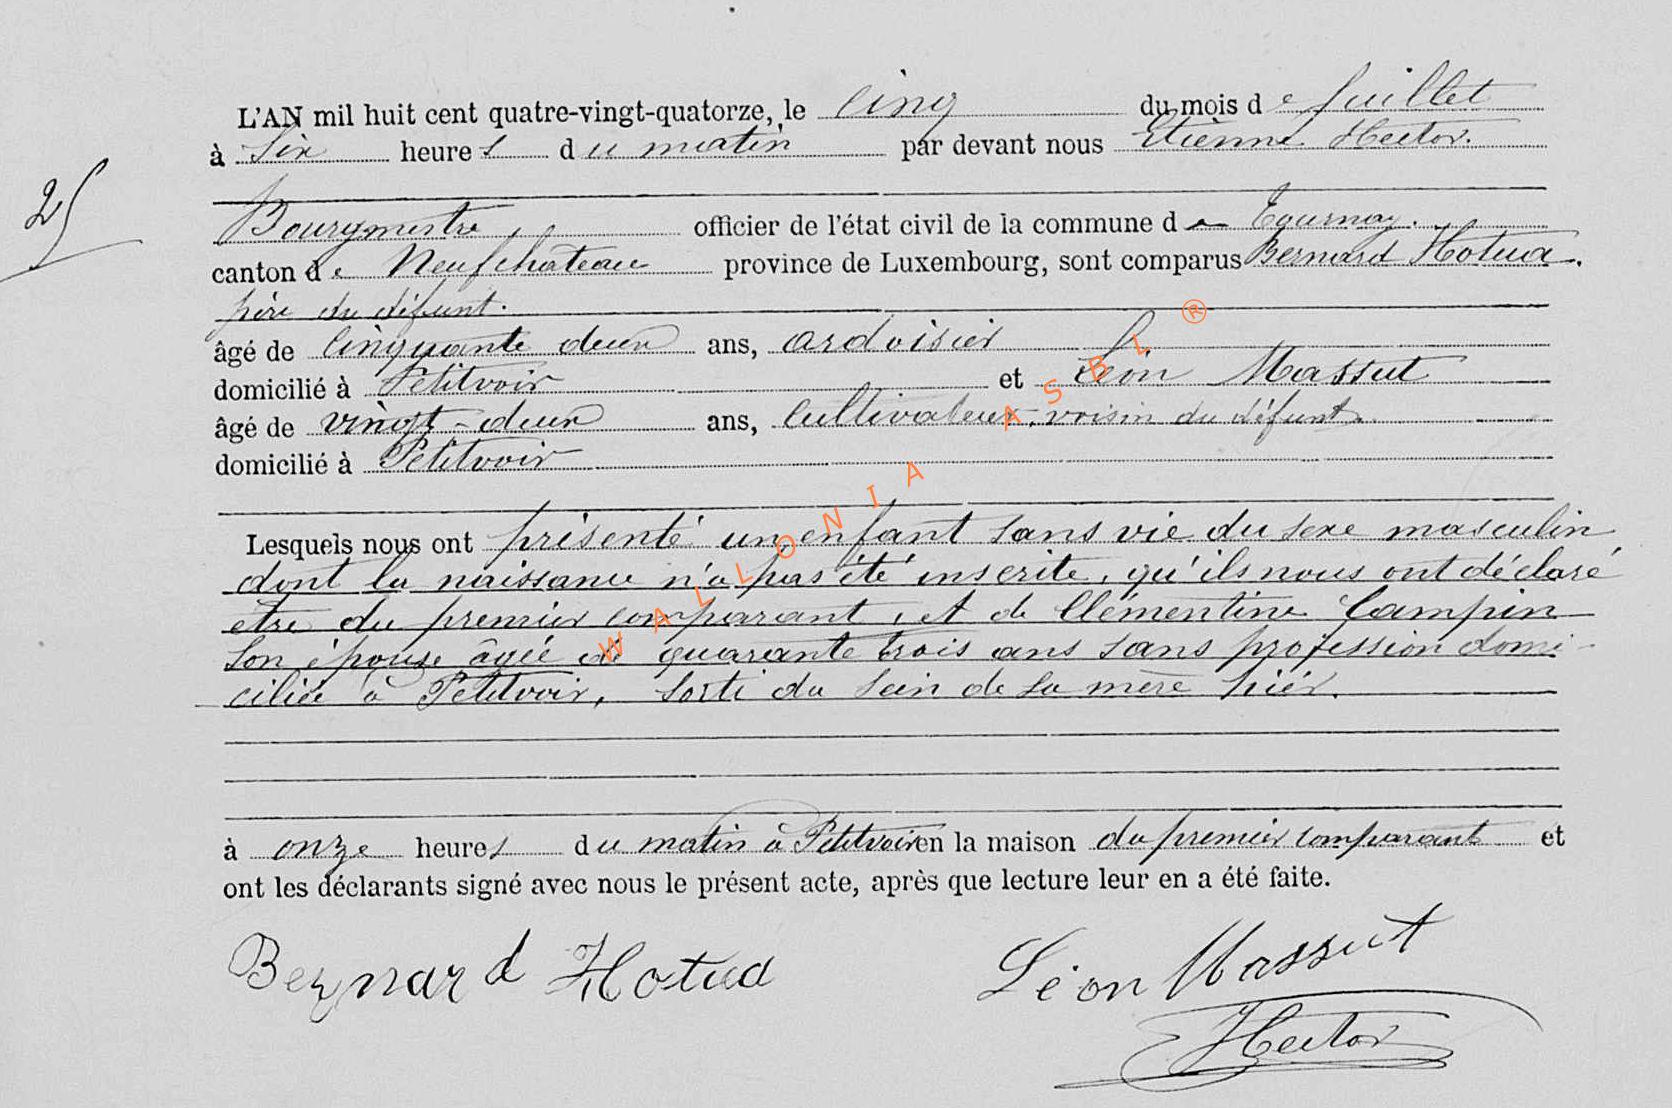 L'AN mil huit cent quatre-vingt-quatorze, le cinq du mois de Juillet
à six heures du matin par devant nous Etienne Hector.
25
Bourgmestre, officier de l'état civil de la commune de Tournay.
canton de Neufchateau province de Luxembourg, sont comparus Bernard Hotua.
père du défunt.
âgé de cinquante deux ans, ardoisier
domicilié à Petitvoir et Léon Massut
âgé de vingt-deux ans, cultivateur, voisin du défunt.
domicilié à Petitvoir
Lesquels nous ont présenté un enfant sans vie du sexe masculin
dont la naissance n'a pas été inscrite, qu'ils nous ont déclaré
etre du premier comparant, et de Clémentine Campin
son épouse âgée de quarante trois ans sans profession domi-
ciliée à Petitvoir, sorti du sein de sa mère hier.
à onze heures du matin à Petitvoir en la maison du premier comparant et
ont les déclarants signé avec nous le présent acte, après que lecture leur en a été faite.
Bernard Hotua Léon Massut
Hector
WALLONIA ASBL ®